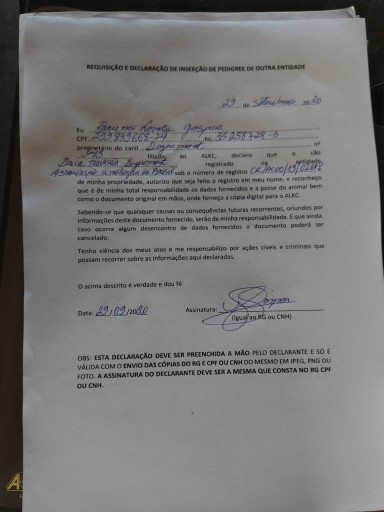 REQUISIÇÃO E DECLARAÇÃO DE INSERÇÃO DE PEDIGREE DE OUTRA ENTIDADE
29 de setembro 2020
Eu
CPF RG 35258728-5
proprietário do canil Dogsmond, nº
filiado ao ALKC, declaro que o cão
registrado na entidade
sob o número de registro
de minha propriedade, autorizo que seja feito o registro em meu nome, e reconheço
que é de minha total responsabilidade os dados fornecidos e a posse do animal bem
como o documento original em mãos, onde forneço a cópia digital para o ALKC.
Sabendo-se que quaisquer causas ou consequências futuras recorrentes, oriundos por
informações deste documento fornecido, serão de minha responsabilidade. E que ainda,
caso ocorra algum desencontro de dados fornecidos o documento poderá ser
cancelado.
Tenho ciência dos meus atos e me responsabilizo por ações cíveis e criminais que
possam recorrer sobre as informações aqui declaradas.
O acima descrito é verdade e dou fé
Data: 29/09/2020 Assinatura:
(Igual ao RG ou CNH)
OBS: ESTA DECLARAÇÃO DEVE SER PREENCHIDA A MÃO PELO DECLARANTE E SÓ É
VÁLIDA COM O ENVIO DAS CÓPIAS DO RG E CPF OU CNH DO MESMO EM JPEG, PNG OU
FOTO. A ASSINATURA DO DECLARANTE DEVE SER A MESMA QUE CONSTA NO RG CPF
OU CNH.